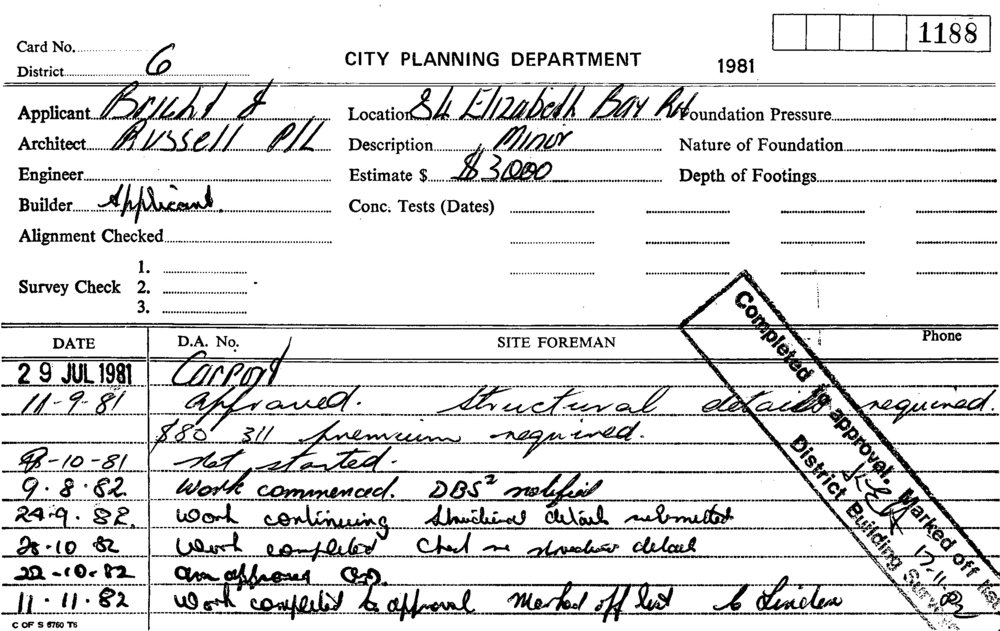 1188
Card No.
District 6
CITY PLANNING DEPARTMENT 1981
Applicant Bright & Location 84 Elizabeth Bay Rd Foundation Pressure
Architect Russell P/L Description Minor Nature of Foundation
Engineer Estimate $ $3,000 Depth of Footings
Builder Applicant. Conc. Tests (Dates)
Alignment Checked
1.
Survey Check 2.
3.
DATE D.A. No. SITE FOREMAN Phone
29 JUL 1981 Carport
11-9-81 approved. Structural details required.
$80 311 premium required.
-10-81 not started.
9.8.82 Work commenced. DBS² notified
24.9.82. Work continuing structural details submitted
28-10 82 Work completed Check re structural detail
22-10-82 approved
11.11.82 Work completed to approval Marked off list
Completed to approval. Marked off list
17-11-82
District Building Surveyor
C OF S 6760 T6